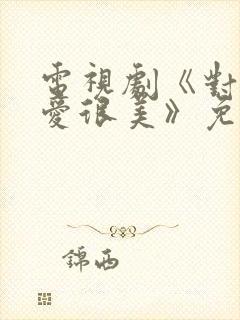 電視劇《對
愛很美》免
錦西